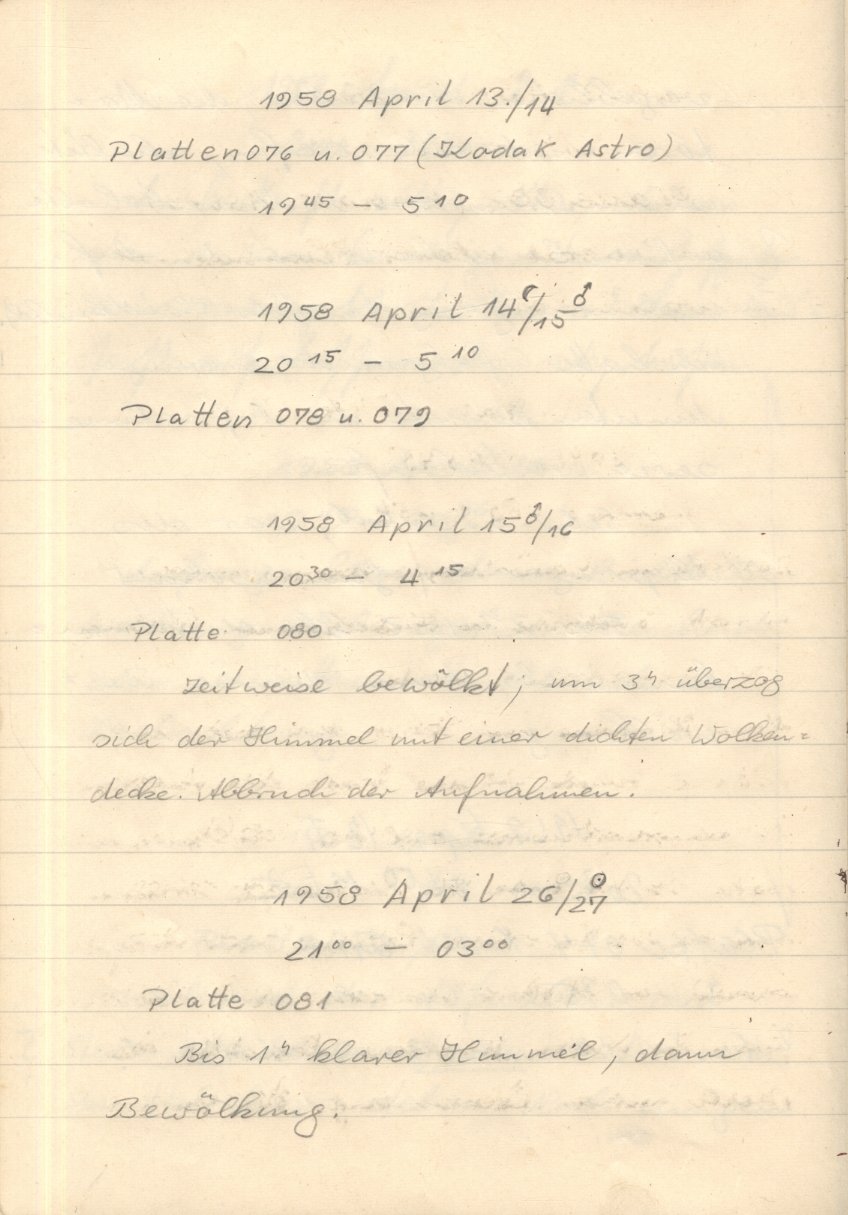 1958 April 13./14
Platten 076 u. 077 (Kodak Astro)
19⁴⁵ – 5¹⁰
1958 April 14☾/15♂
20¹⁵ – 5¹⁰
Platten 078 u. 079
1958 April 15♂/16
20³⁰ – 4¹⁵
Platte 080
Zeitweise bewölkt; um 3ʰ überzog
sich der Himmel mit einer dichten Wolken=
decke. Abbruch der Aufnahmen.
1958 April 26/27☉
21⁰⁰ – 03⁰⁰
Platte 081
Bis 1ʰ klarer Himmel, dann
Bewölkung.